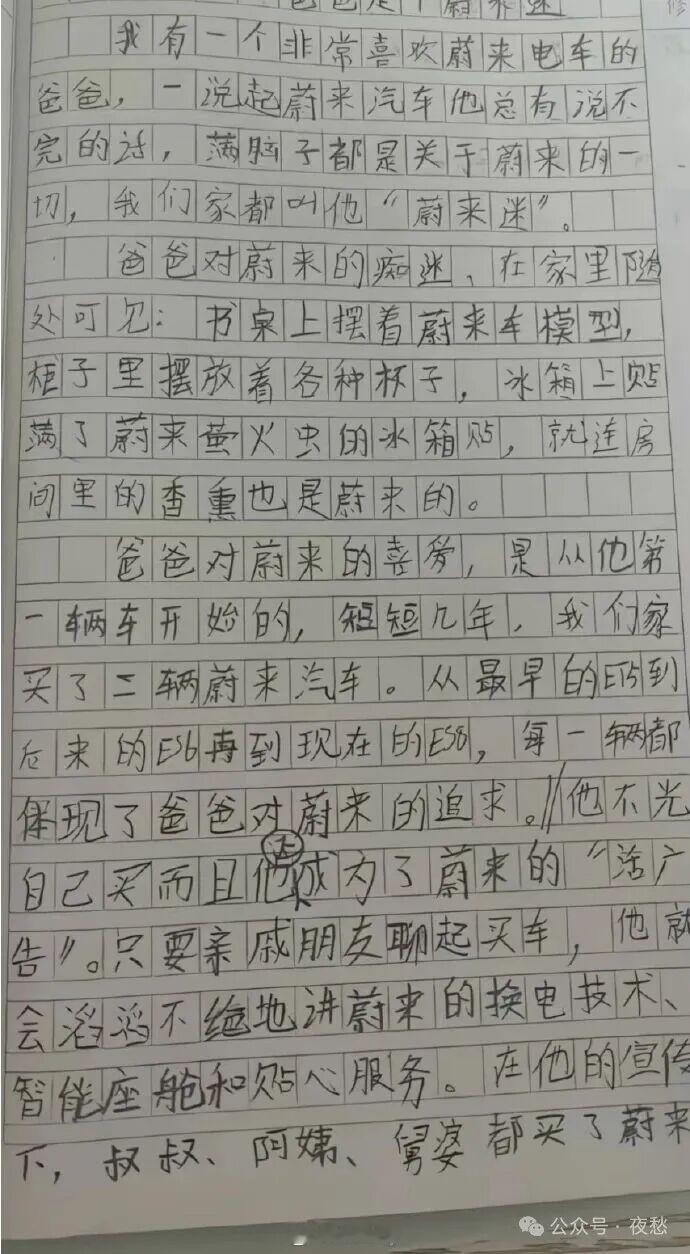 爸爸是个蔚来迷
修
我有一个非常喜欢蔚来电车的
爸爸，一说起蔚来汽车他总有说不
完的话，满脑子都是关于蔚来的一
切，我们家都叫他“蔚来迷”。
爸爸对蔚来的痴迷、在家里随
处可见：书桌上摆着蔚来车模型，
柜子里摆放着各种杯子，冰箱上贴
满了蔚来萤火虫的冰箱贴，就连房
间里的香熏也是蔚来的。
爸爸对蔚来的喜爱，是从他第
一辆车开始的，短短几年，我们家
买了二辆蔚来汽车。从最早的ET5到
后来的ES6再到现在的ES8，每一辆都
体现了爸爸对蔚来的追求。//他不光
自己买而且他还成为了蔚来的“活广
告”。只要亲戚朋友聊起买车，他就
会滔滔不绝地讲蔚来的换电技术、
智能座舱和贴心服务。在他的宣传
下，叔叔、阿姨、舅婆都买了蔚来
公众号·夜愁